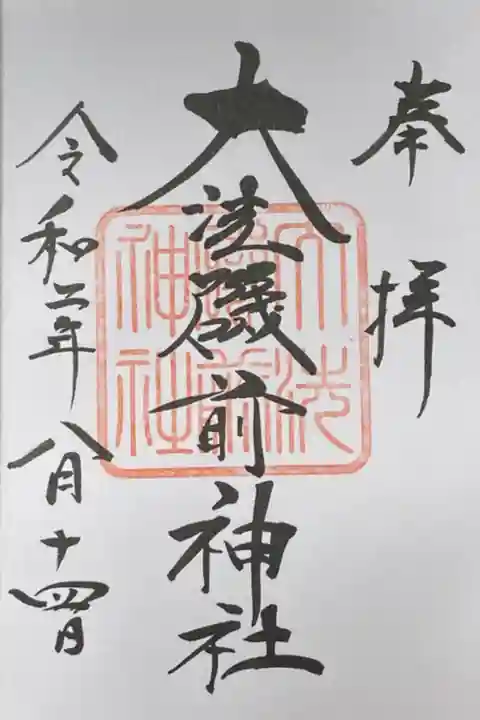 奉拝
大洗磯前神社
令和二年八月十四日
大洗
磯前
神社